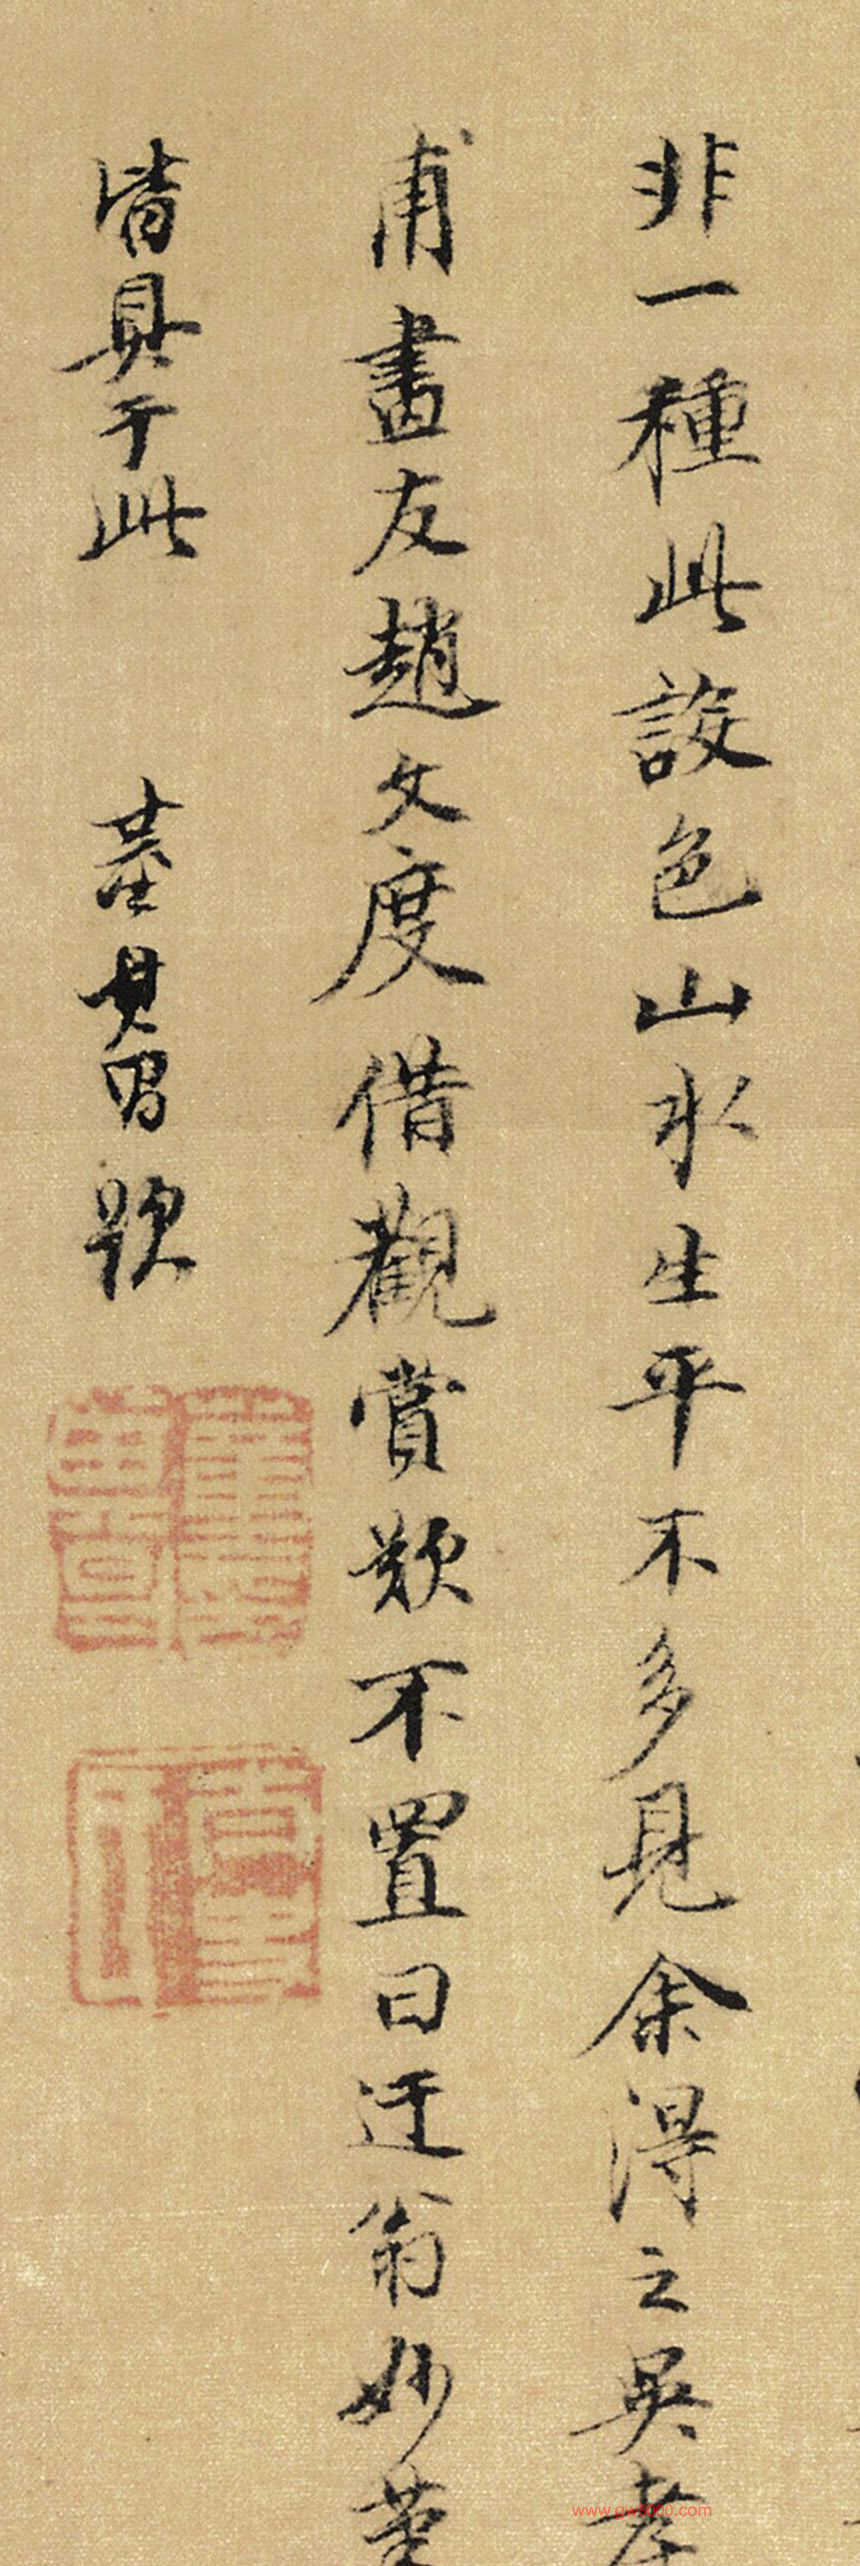 非一種此設色山水生平不多見余得之吳孝
甫畫友趙文度借觀賞歎不置曰迂翁妙
皆具于此 董其昌題
董其昌
www.gw5000.com